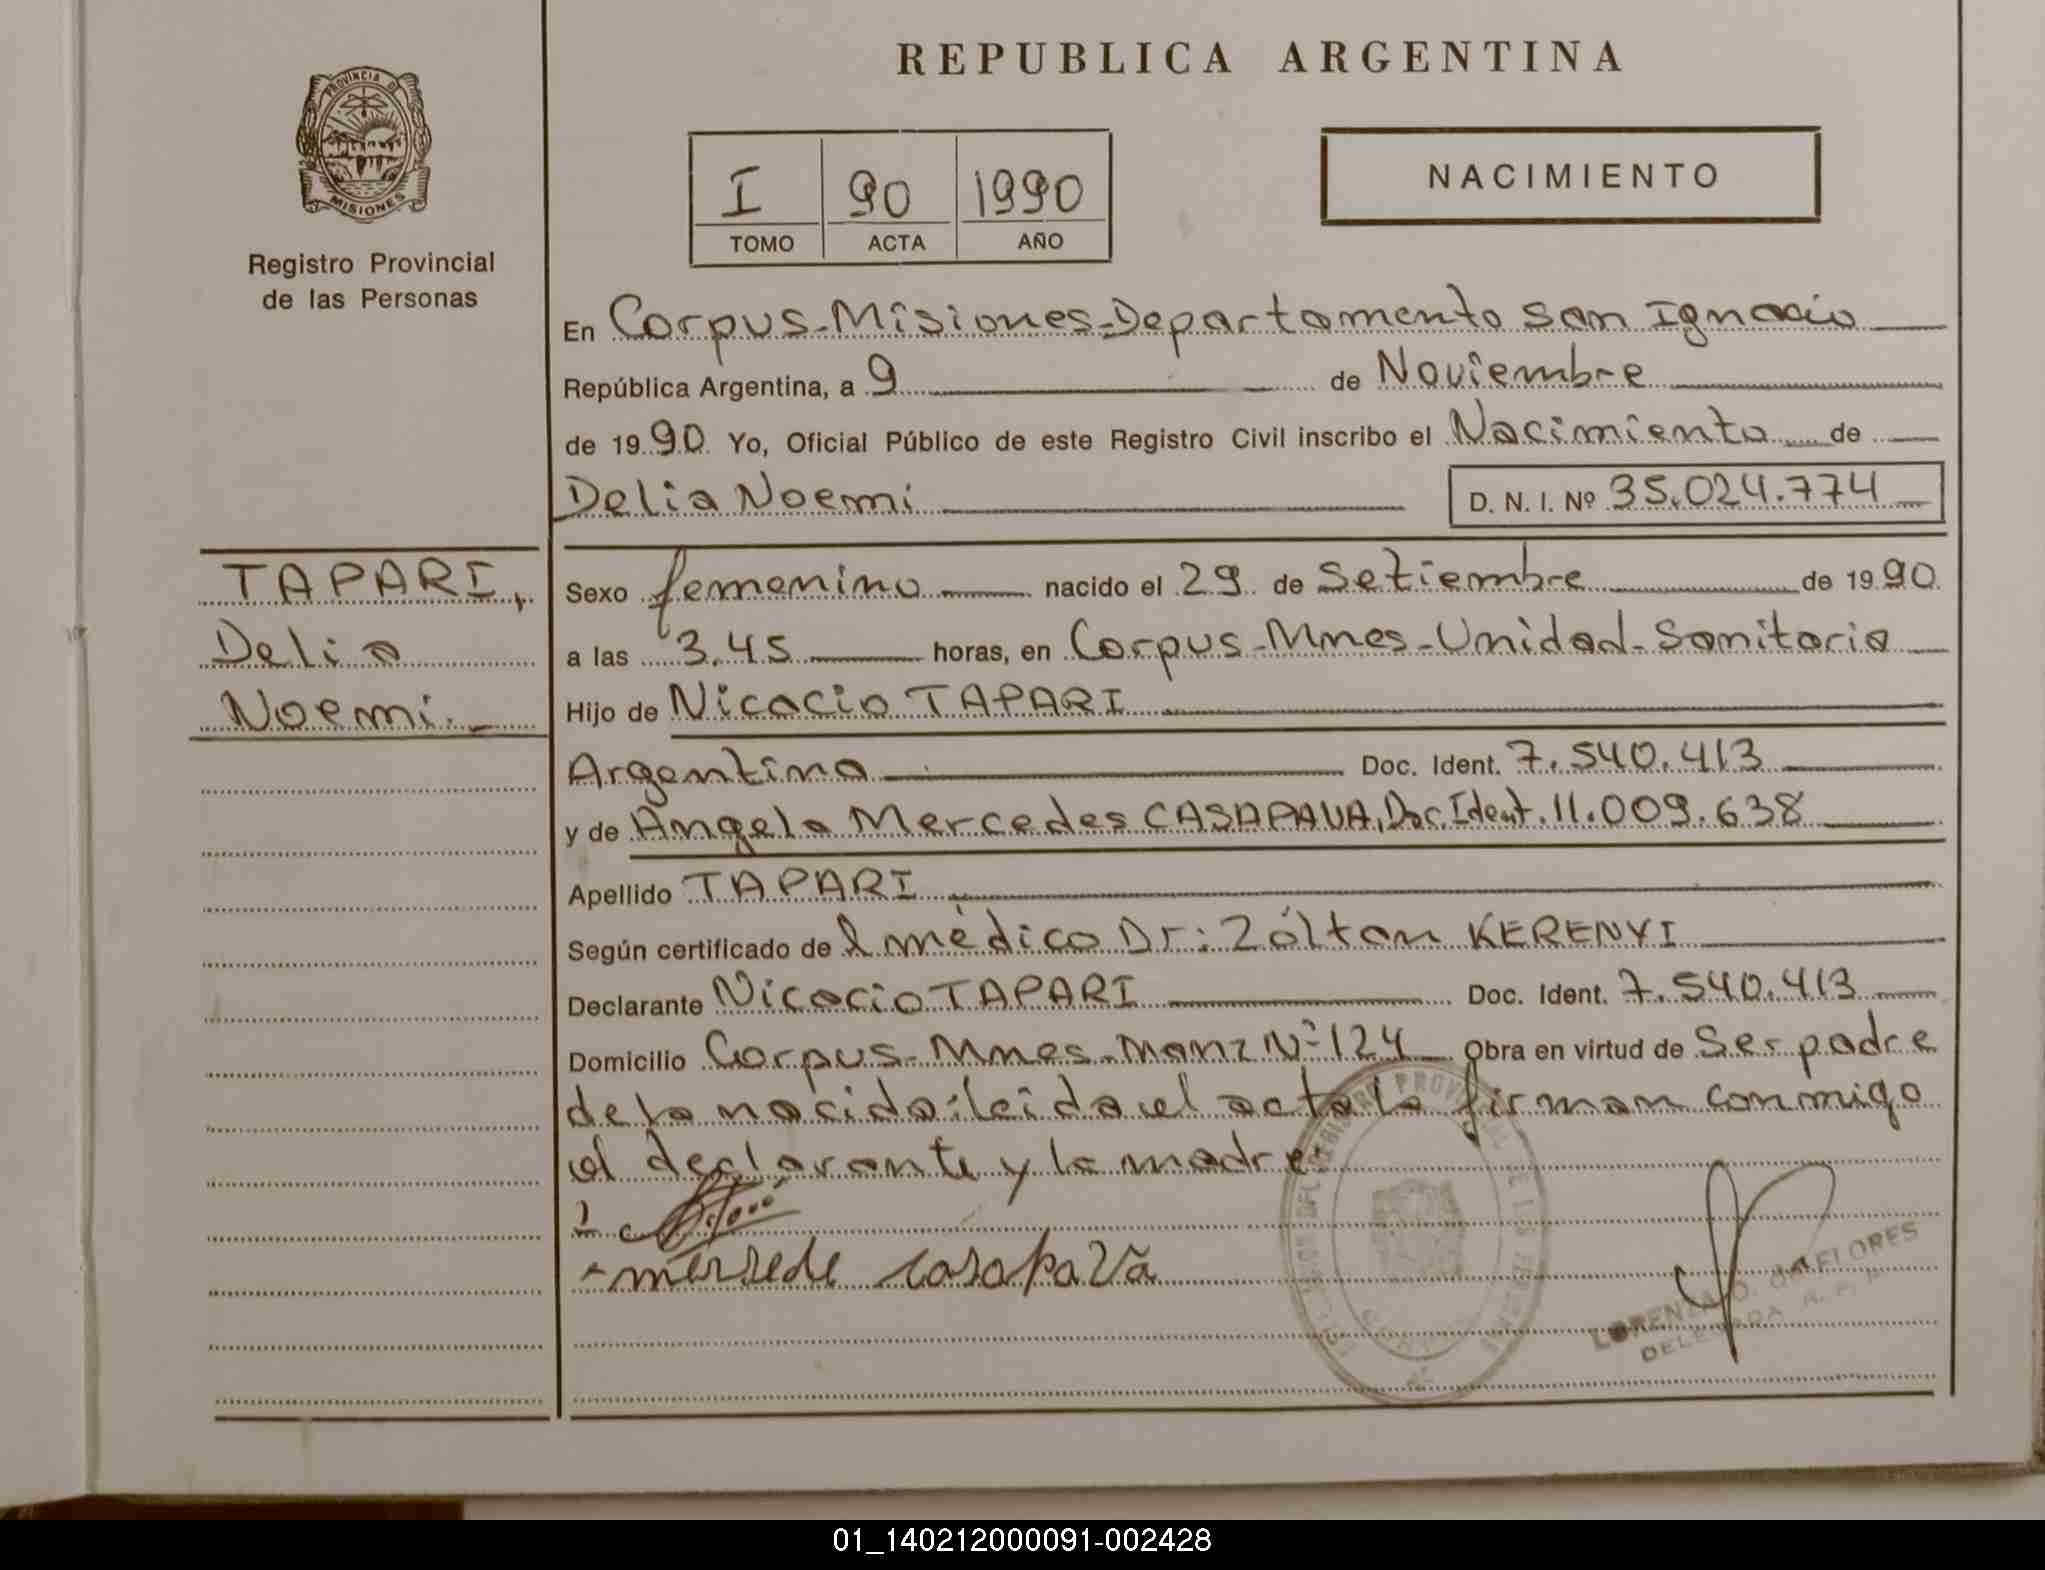 REPUBLICA ARGENTINA
PROVINCIA DE
MISIONES
Registro Provincial
de las Personas
I 90 1990
TOMO ACTA AÑO
NACIMIENTO
En Corpus-Misiones-Departamento San Ignacio
República Argentina, a 9 de Noviembre
de 1990 Yo, Oficial Público de este Registro Civil inscribo el Nacimiento de
Delia Noemi D. N. I. Nº 35.024.774
TAPARI,
Delia
Noemi.
Sexo femenino nacido el 29 de Setiembre de 1990
a las 3.45 horas, en Corpus-Mnes-Unidad-Sanitaria
Hijo de Nicacio TAPARI
Argentina Doc. Ident. 7.540.413
y de Angela Mercedes CASAPAVA, Doc. Ident. 11.009.638
Apellido TAPARI
Según certificado de l médico Dr: Zóltan KERENYI
Declarante Nicacio TAPARI Doc. Ident. 7.540.413
Domicilio Corpus-Mnes-Manz Nº 124 Obra en virtud de Ser padre
de la nacida: leida el acta la firman conmigo
el declarante y la madre.
mersede casapava
LORENZA D. de FLORES
DELEGADA
01_140212000091-002428